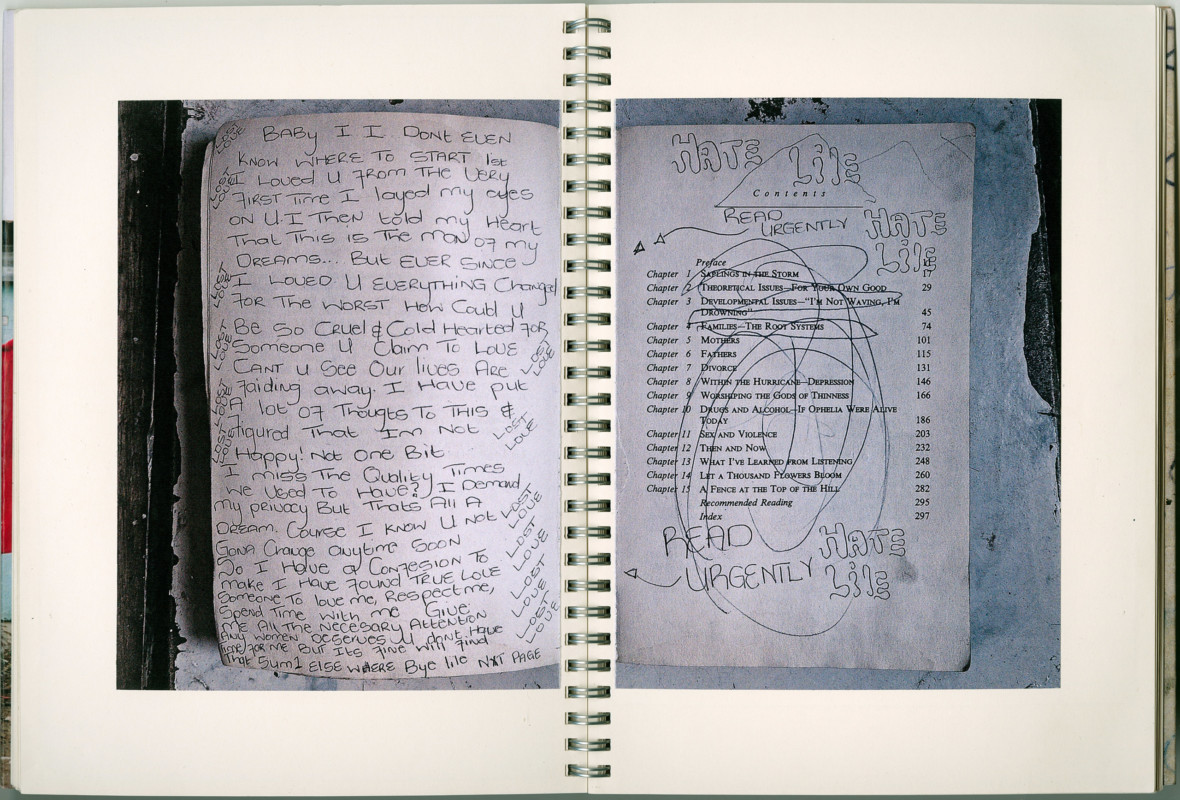 BABY I I DONT EVEN
KNOW WHERE TO START 1st
I LOVED U FROM THE VERY
FIRST TIME I layed my eyes
ON U. I THEN told my HEART
THAT THIS IS THE MAN OF MY
DREAMS... BUT EVER SINCE
I LOVED U EVERYTHING Changed
FOR THE WORST HOW COULD U
BE SO CRUEL & COLD HEARTED FOR
SOMEONE U CLAIM TO LOVE
CANT U SEE OUR lives ARE
Faiding away. I HAVE put
A lot OF THougTS TO THIS &
figured THAT Im NOT
Happy! Not ONE Bit.
I miss THE Quality Times
WE USED TO HAVE? I DEMAND
my privacy BUT THATS All A
DREAM. COURSE I KNOW U NOT
GONA CHANGE anytime SOON
SO I HAVE a CONFESION TO
make I HAVE FOUND TRUE LOVE
SOMEONE TO love me, RESPECT me,
SPEND TIME WITH me GIVE
ME All THE NECESARY ATTENTION
ANY WOMEN DESERVES U dont HAVE
time FOR ME BUT ITS FINE WILL FIND
THAT 5um1 ELSE WHERE Bye lilo NXT PAGE
LOST LOVE
LOST LOVE
LOST LOVE
LOST LOVE
LOST LOVE
LOST LOVE
LOST LOVE
LOST LOVE
LOST LOVE
LOST LOVE
LOST LOVE
LOST LOVE
HATE LilE
Contents
READ URGENTLY
HATE LilE
Preface
Chapter 1 SAPLINGS IN THE STORM 17
Chapter 2 THEORETICAL ISSUES—FOR YOUR OWN GOOD 29
Chapter 3 DEVELOPMENTAL ISSUES—"I'M NOT WAVING, I'M
DROWNING" 45
Chapter 4 FAMILIES—THE ROOT SYSTEMS 74
Chapter 5 MOTHERS 101
Chapter 6 FATHERS 115
Chapter 7 DIVORCE 131
Chapter 8 WITHIN THE HURRICANE—DEPRESSION 146
Chapter 9 WORSHIPING THE GODS OF THINNESS 166
Chapter 10 DRUGS AND ALCOHOL—IF OPHELIA WERE ALIVE
TODAY 186
Chapter 11 SEX AND VIOLENCE 203
Chapter 12 THEN AND NOW 232
Chapter 13 WHAT I'VE LEARNED FROM LISTENING 248
Chapter 14 LET A THOUSAND FLOWERS BLOOM 260
Chapter 15 A FENCE AT THE TOP OF THE HILL 282
Recommended Reading 295
Index 297
READ URGENTLY
HATE LilE